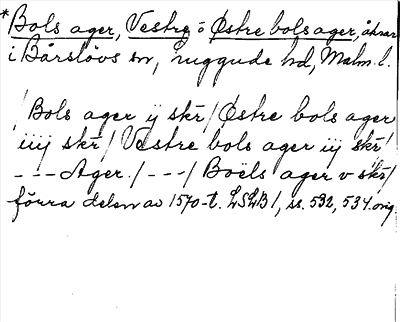 * Bols ager, Vestre o Østre bols ager, åkrar
i Bårslövs sn, Luggude hd, Malm. l.
/ Bols ager ij skr / Østre bols ager
iiij skr / Vestre bols ager iij skr /
--- Ager. / --- / Boëls ager v skr /
förra delen av 1570-t. LSLB 1, ss. 532, 534. orig.